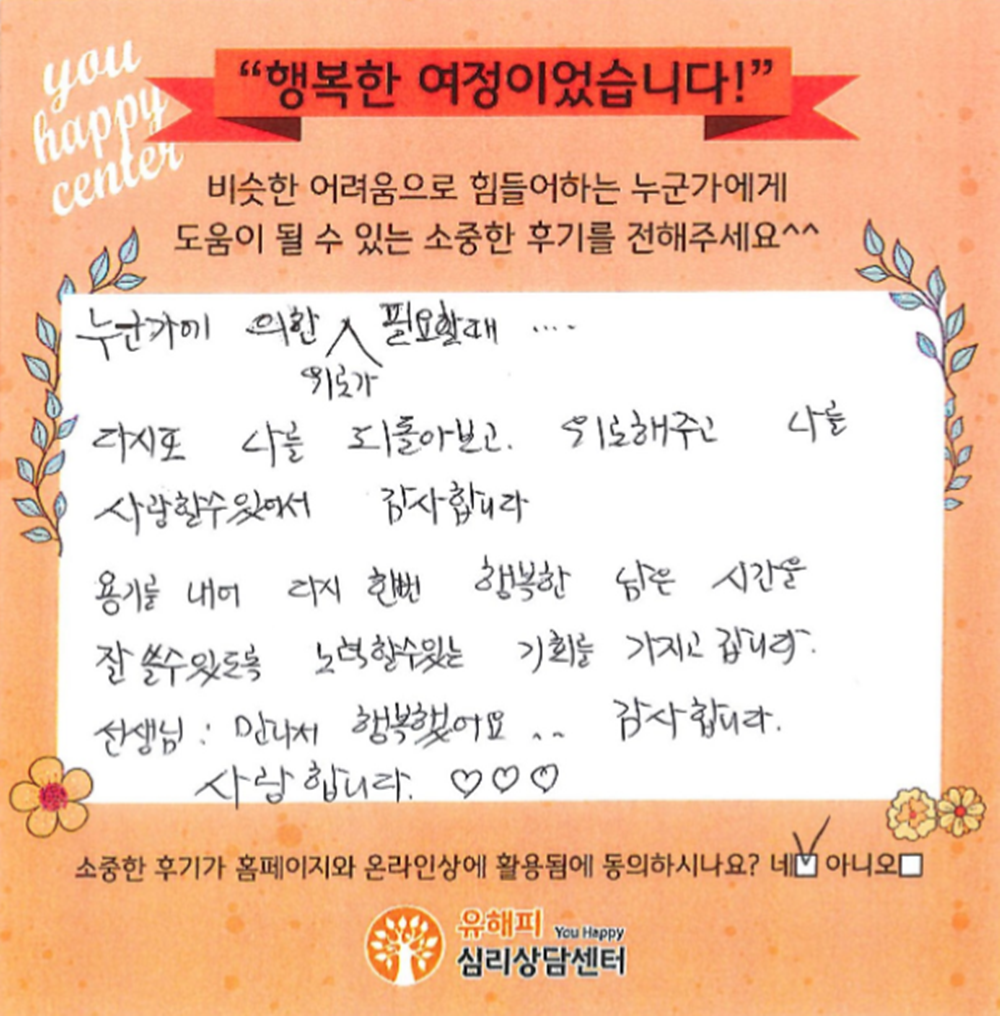 you
happy
center
“행복한 여정이었습니다!”
비슷한 어려움으로 힘들어하는 누군가에게
도움이 될 수 있는 소중한 후기를 전해주세요^^
누군가에 의한 위로가 필요할때 ....
다시또 나를 되돌아보고. 위로해주고 나를
사랑할수있어서 감사합니다
용기를 내어 다시 한번 행복한 남은 시간을
잘 쓸수있도록 노력할수있는 기회를 가지고 갑니다.
선생님 : 만나서 행복했어요 .. 감사합니다.
사랑합니다. ♡♡♡
소중한 후기가 홈페이지와 온라인상에 활용됨에 동의하시나요? 네☑ 아니오☐
유해피 You Happy
심리상담센터